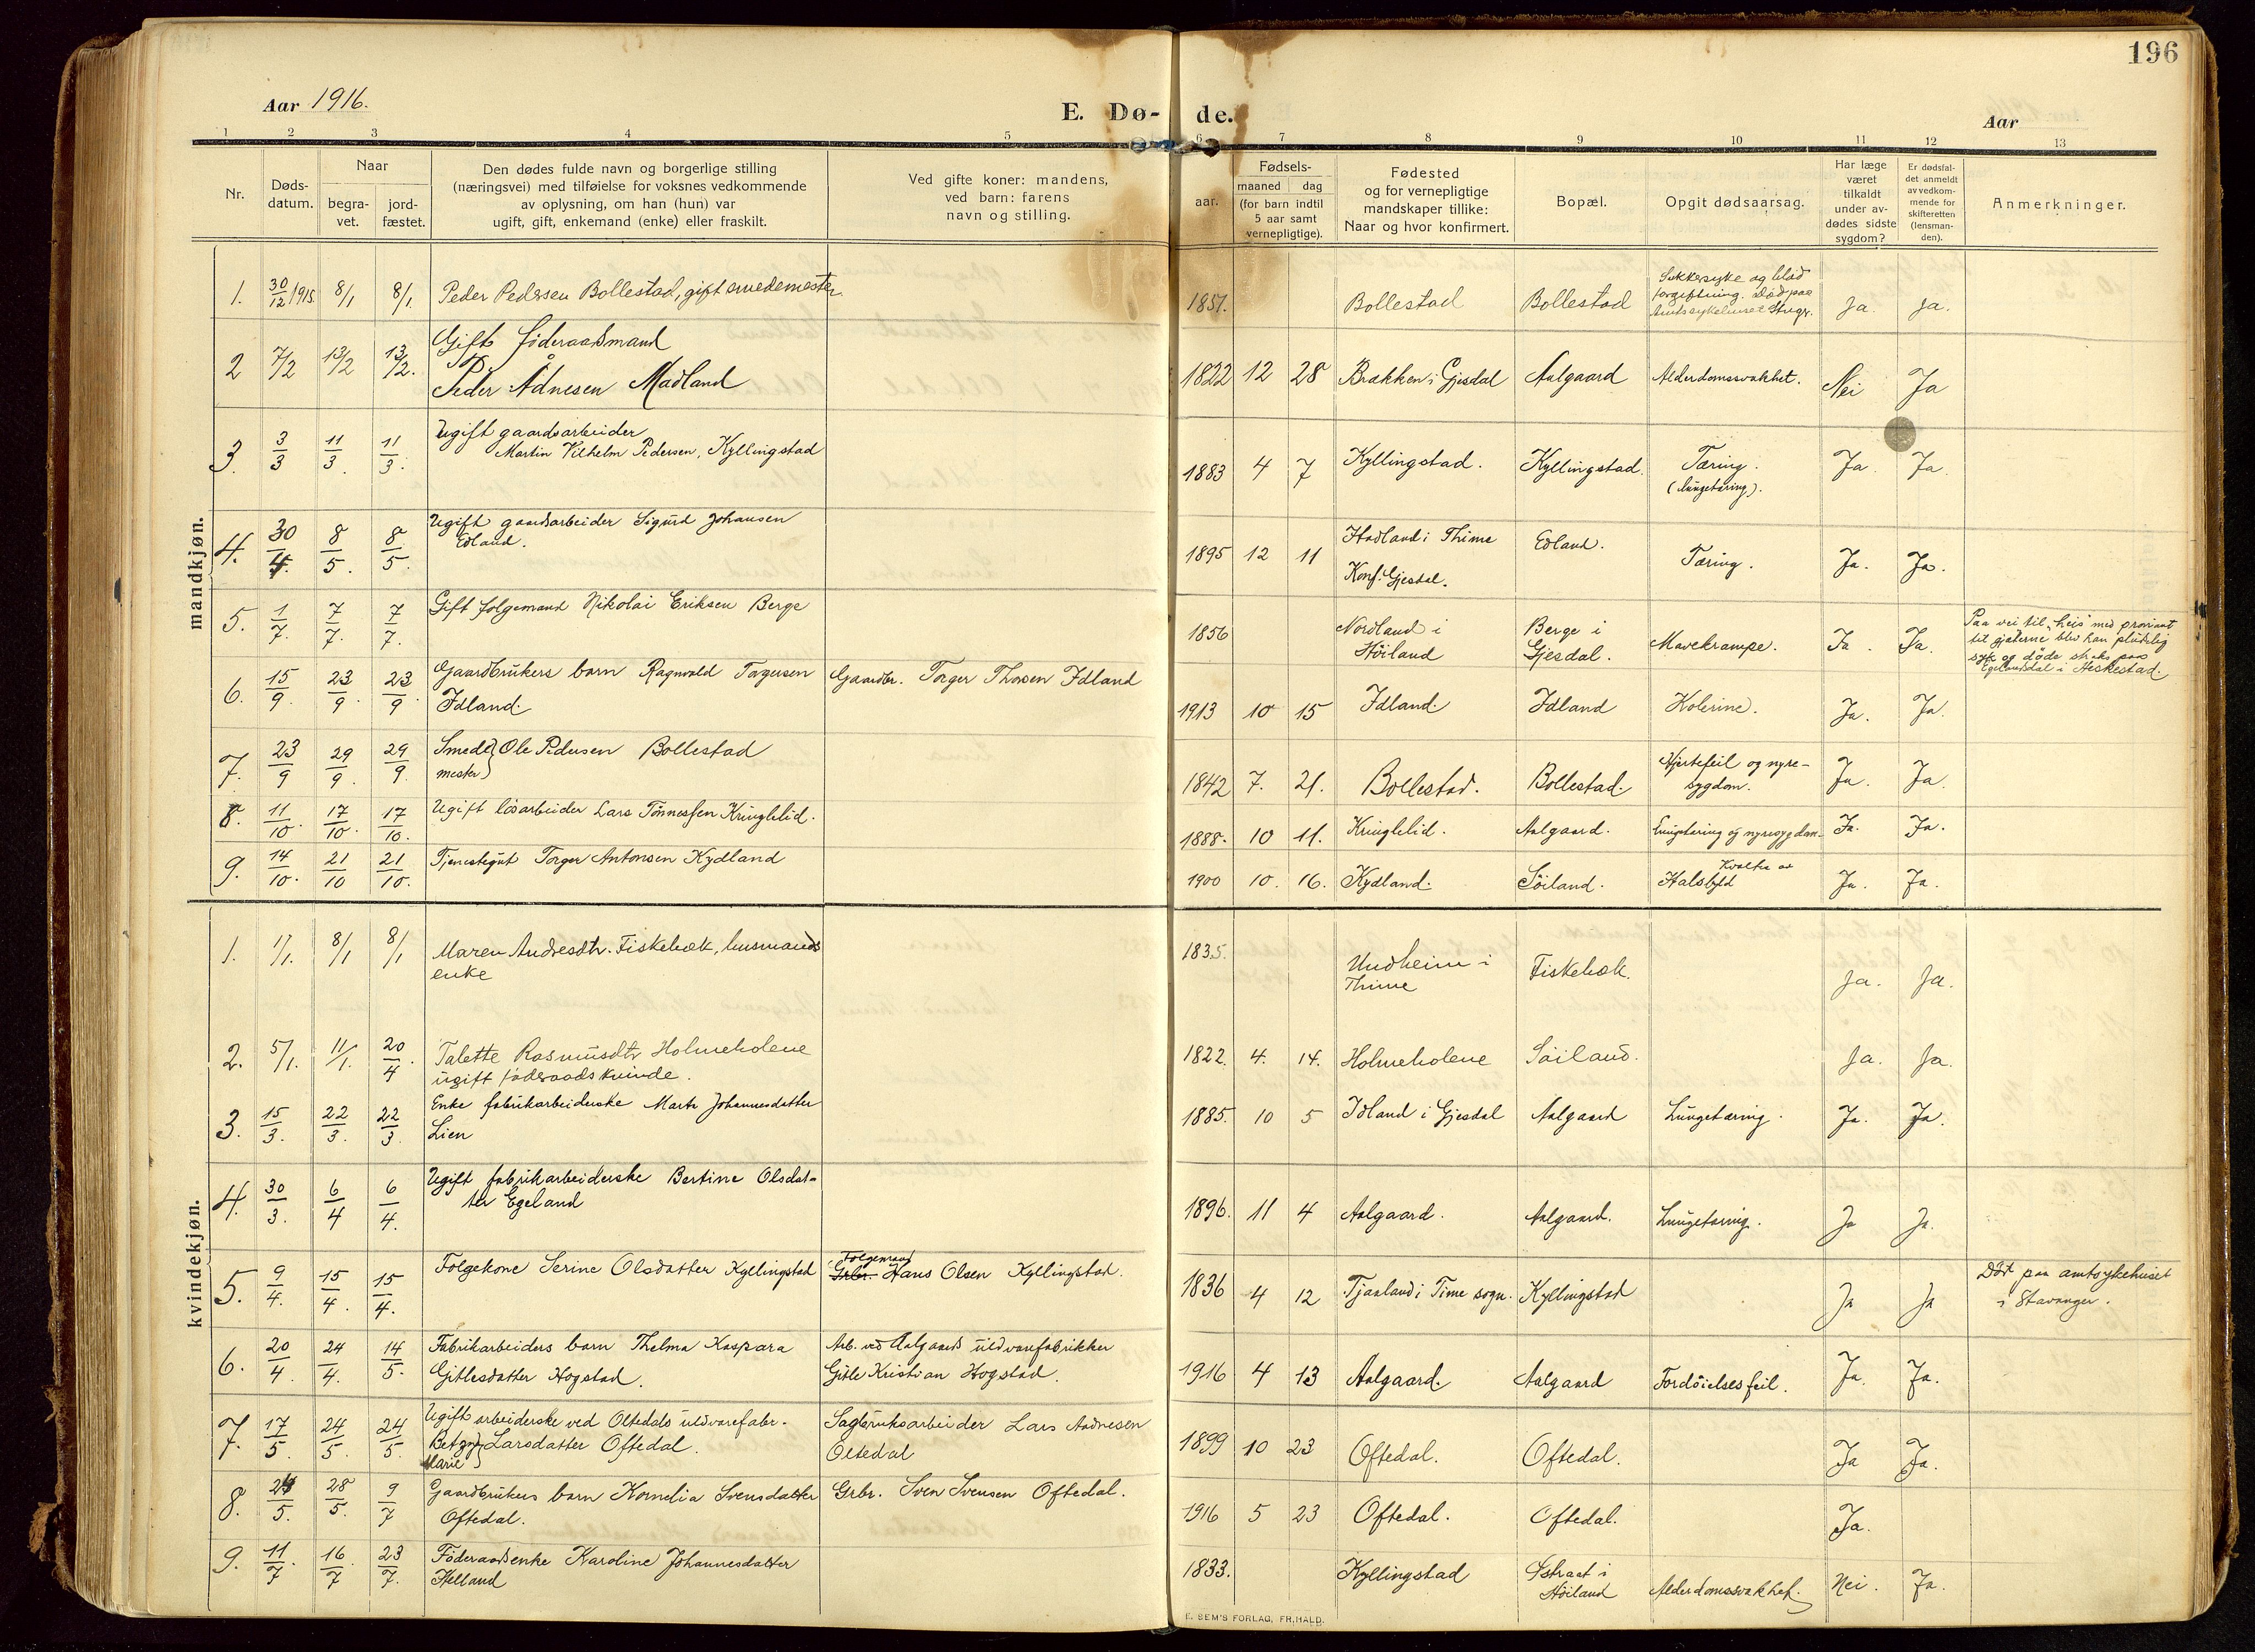 196
Aar 1916.
E. Dø- de.
Aar
1 2 3 4 5 6 7 8 9 10 11 12 13
Nr.
Døds-
datum.
Naar
begra-
vet.
jord-
fæstet.
Den dødes fulde navn og borgerlige stilling
(næringsvei) med tilføielse for voksnes vedkommende
av oplysning, om han (hun) var
ugift, gift, enkemand (enke) eller fraskilt.
Ved gifte koner: mandens,
ved barn: farens
navn og stilling.
Fødsels-
aar.
maaned dag
(for barn indtil
5 aar samt
vernepligtige).
Fødested
og for vernepligtige
mandskaper tillike:
Naar og hvor konfirmert.
Bopæl.
Opgit dødsaarsag.
Har læge
været
tilkaldt
under av-
dødes sidste
sygdom?
Er dødsfal-
det anmeldt
av vedkom-
mende for
skifteretten
(lensman-
den).
Anmerkninger.
mandkjøn.
1. 30/12 1915 8/1 8/1. Peder Pedersen Bollestad, gift smedemester 1851. Bollestad Bollestad
Sukkersyke og blod
forgiftning. Død paa
Amtssykehuset Stvgr. Ja. Ja.
2 7/2 13/2 13/2. Gift føderaadsmand
Peder Ådnesen Madland 1822 12 28 Brækken i Gjesdal Aalgaard Alderdomssvakhet. Nei Ja
3. 3/3 11/3. 11/3. Ugift gaardsarbeider
Martin Vilhelm Pedersen, Kyllingstad 1883 4 7 Kyllingstad. Kyllingstad. Tæring.
(Lungetæring). Ja. Ja.
4. 30/4. 8/5. 8/5. Ugift gaardsarbeider Sigurd Johansen
Edland. 1895 12 11 Hadland i Thime
Konf. Gjesdal. Edland. Tæring. Ja. Ja.
5. 1/7. 7/7. 7/7. Gift følgemand Nikolai Eriksen Berge 1856 Nordland i
Höiland Berge i
Gjesdal. Mavekrampe. Ja. Ja.
Paa vei til heis med proviant
til gjæterne blev han pludselig
syk og døde straks paa
Egelandsdal i Heskestad.
6. 15/9. 23/9. 23/9. Gaardbrukers barn Ragnvald Torgersen
Idland. Gaardbr. Torger Thorsen Idland 1913 10 15 Idland. Idland Kolerine. Ja. Ja.
7. 23/9 29/9. 29/9. Smede}
mester} Ole Pedersen Bollestad 1842 7. 21. Bollestad. Bollestad. Hjertefeil og nyre-
sygdom. Ja. Ja
8. 11/10. 17/10. 17/10. Ugift løsarbeider Lars Tönnessen Kringlelid. 1888. 10 11. Kringlelid. Aalgaard. Lungetæring og nyresygdom. Ja. Ja.
9. 14/10. 21/10 21/10. Tjenestegut Torger Antonsen Kydland 1900 10. 16. Kydland. Söiland. Kvaltes av
Halsbyld Ja. Ja.
kvindekjøn.
1. 1/1. 8/1 8/1 Maren Andresdtr. Fiskebæk, husmands
enke 1835. Undheim i
Thime Fiskebæk. Ja. Ja.
2. 5/1. 11/1. 20/4. Talette Rasmusdtr Holmeholene
ugift føderaadskvinde. 1822. 4. 14. Holmeholene Söiland. Ja. Ja.
3. 15/3. 22/3. 22/3. Enke fabrikarbeiderske Marta Johannesdatter
Lien 1885. 10 5 Idland i Gjesdal Aalgaard Lungetæring. Ja. Ja.
4. 30/3. 6/4 6/4. Ugift fabrikarbeiderske Bertine Olsdat-
ter Egeland 1896. 11 4 Aalgaard. Aalgaard. Lungetæring. Ja Ja.
5. 9/4. 15/4. 15/4. Følgekone Serine Olsdatter Kyllingstad Følgemand
Grbr. Hans Olsen Kyllingstad. 1836 4 12 Tjaaland i Time sogn. Kyllingstad Ja Ja
Död paa amtsykehuset
i Stavanger.
6. 20/4. 24/4. 14/5. Fabrikarbeiders barn Thelma Kaspara
Gitlesdatter Hogstad. Arb. ved Aalgaards uldvarefabrikker
Gitle Kristian Hogstad. 1916 4 13 Aalgaard. Aalgaard Fordöielsesfeil. Ja. Ja.
7. 17/5. 24/5. 24/5. Ugift arbeiderske ved Oltedals uldvarefabr.
Betzy}
Marie} Larsdatter Oftedal. Sagbruksarbeider Lars Aadnesen
Oltedal 1899 10 23 Oftedal. Oftedal. Ja Ja.
8. 24/5. 28/5. 9/7 Gaardbrukers barn Kornelia Svensdatter
Oftedal. Grbr. Sven Svensen Oftedal. 1916 5 23 Oftedal. Oftedal. Ja.
9. 11/7. 16/7. 23/7. Föderaadsenke Karoline Johannesdatter
Helland 1833. Kyllingstad Østraat i
Höiland Alderdomssvakhet. Nei. Ja.
E. SEM'S FORLAG, FR.HALD.